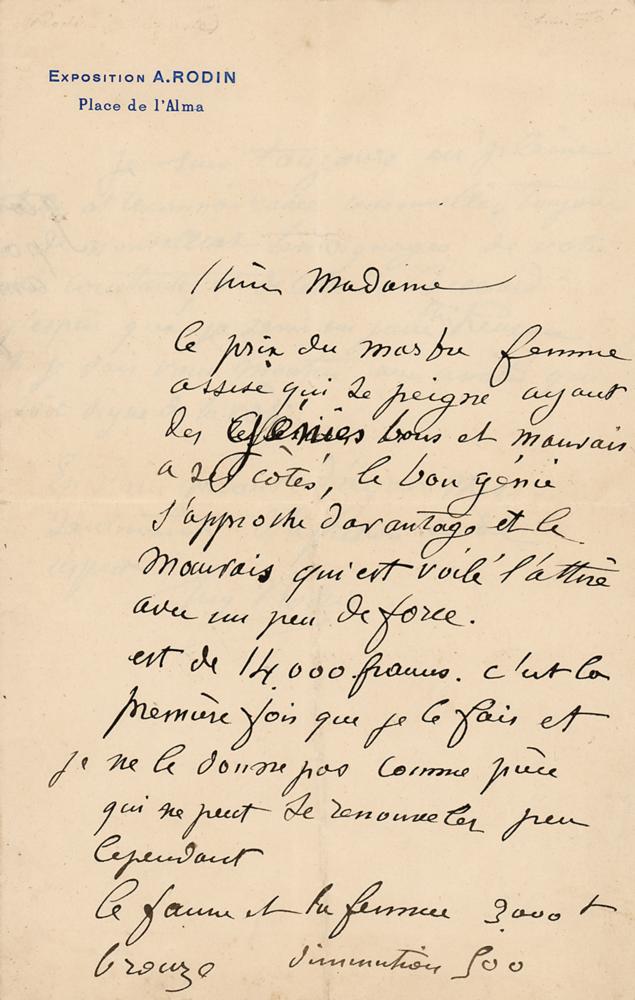 EXPOSITION A. RODIN
Place de l'Alma
Chère Madame
le prix du marbre femme
assise qui se peigne ayant
des génies bons et mauvais
a ses côtés, le bon génie
s'approche davantage et le
mauvais qui est voilé l'attire
avec un peu de force.
est de 14,000 francs. c'est la
première fois que je le fais et
je ne le donne pas comme pièce
qui ne peut se renouveler peu
cependant
le faune et la femme 3000 f
bronze diminution 500